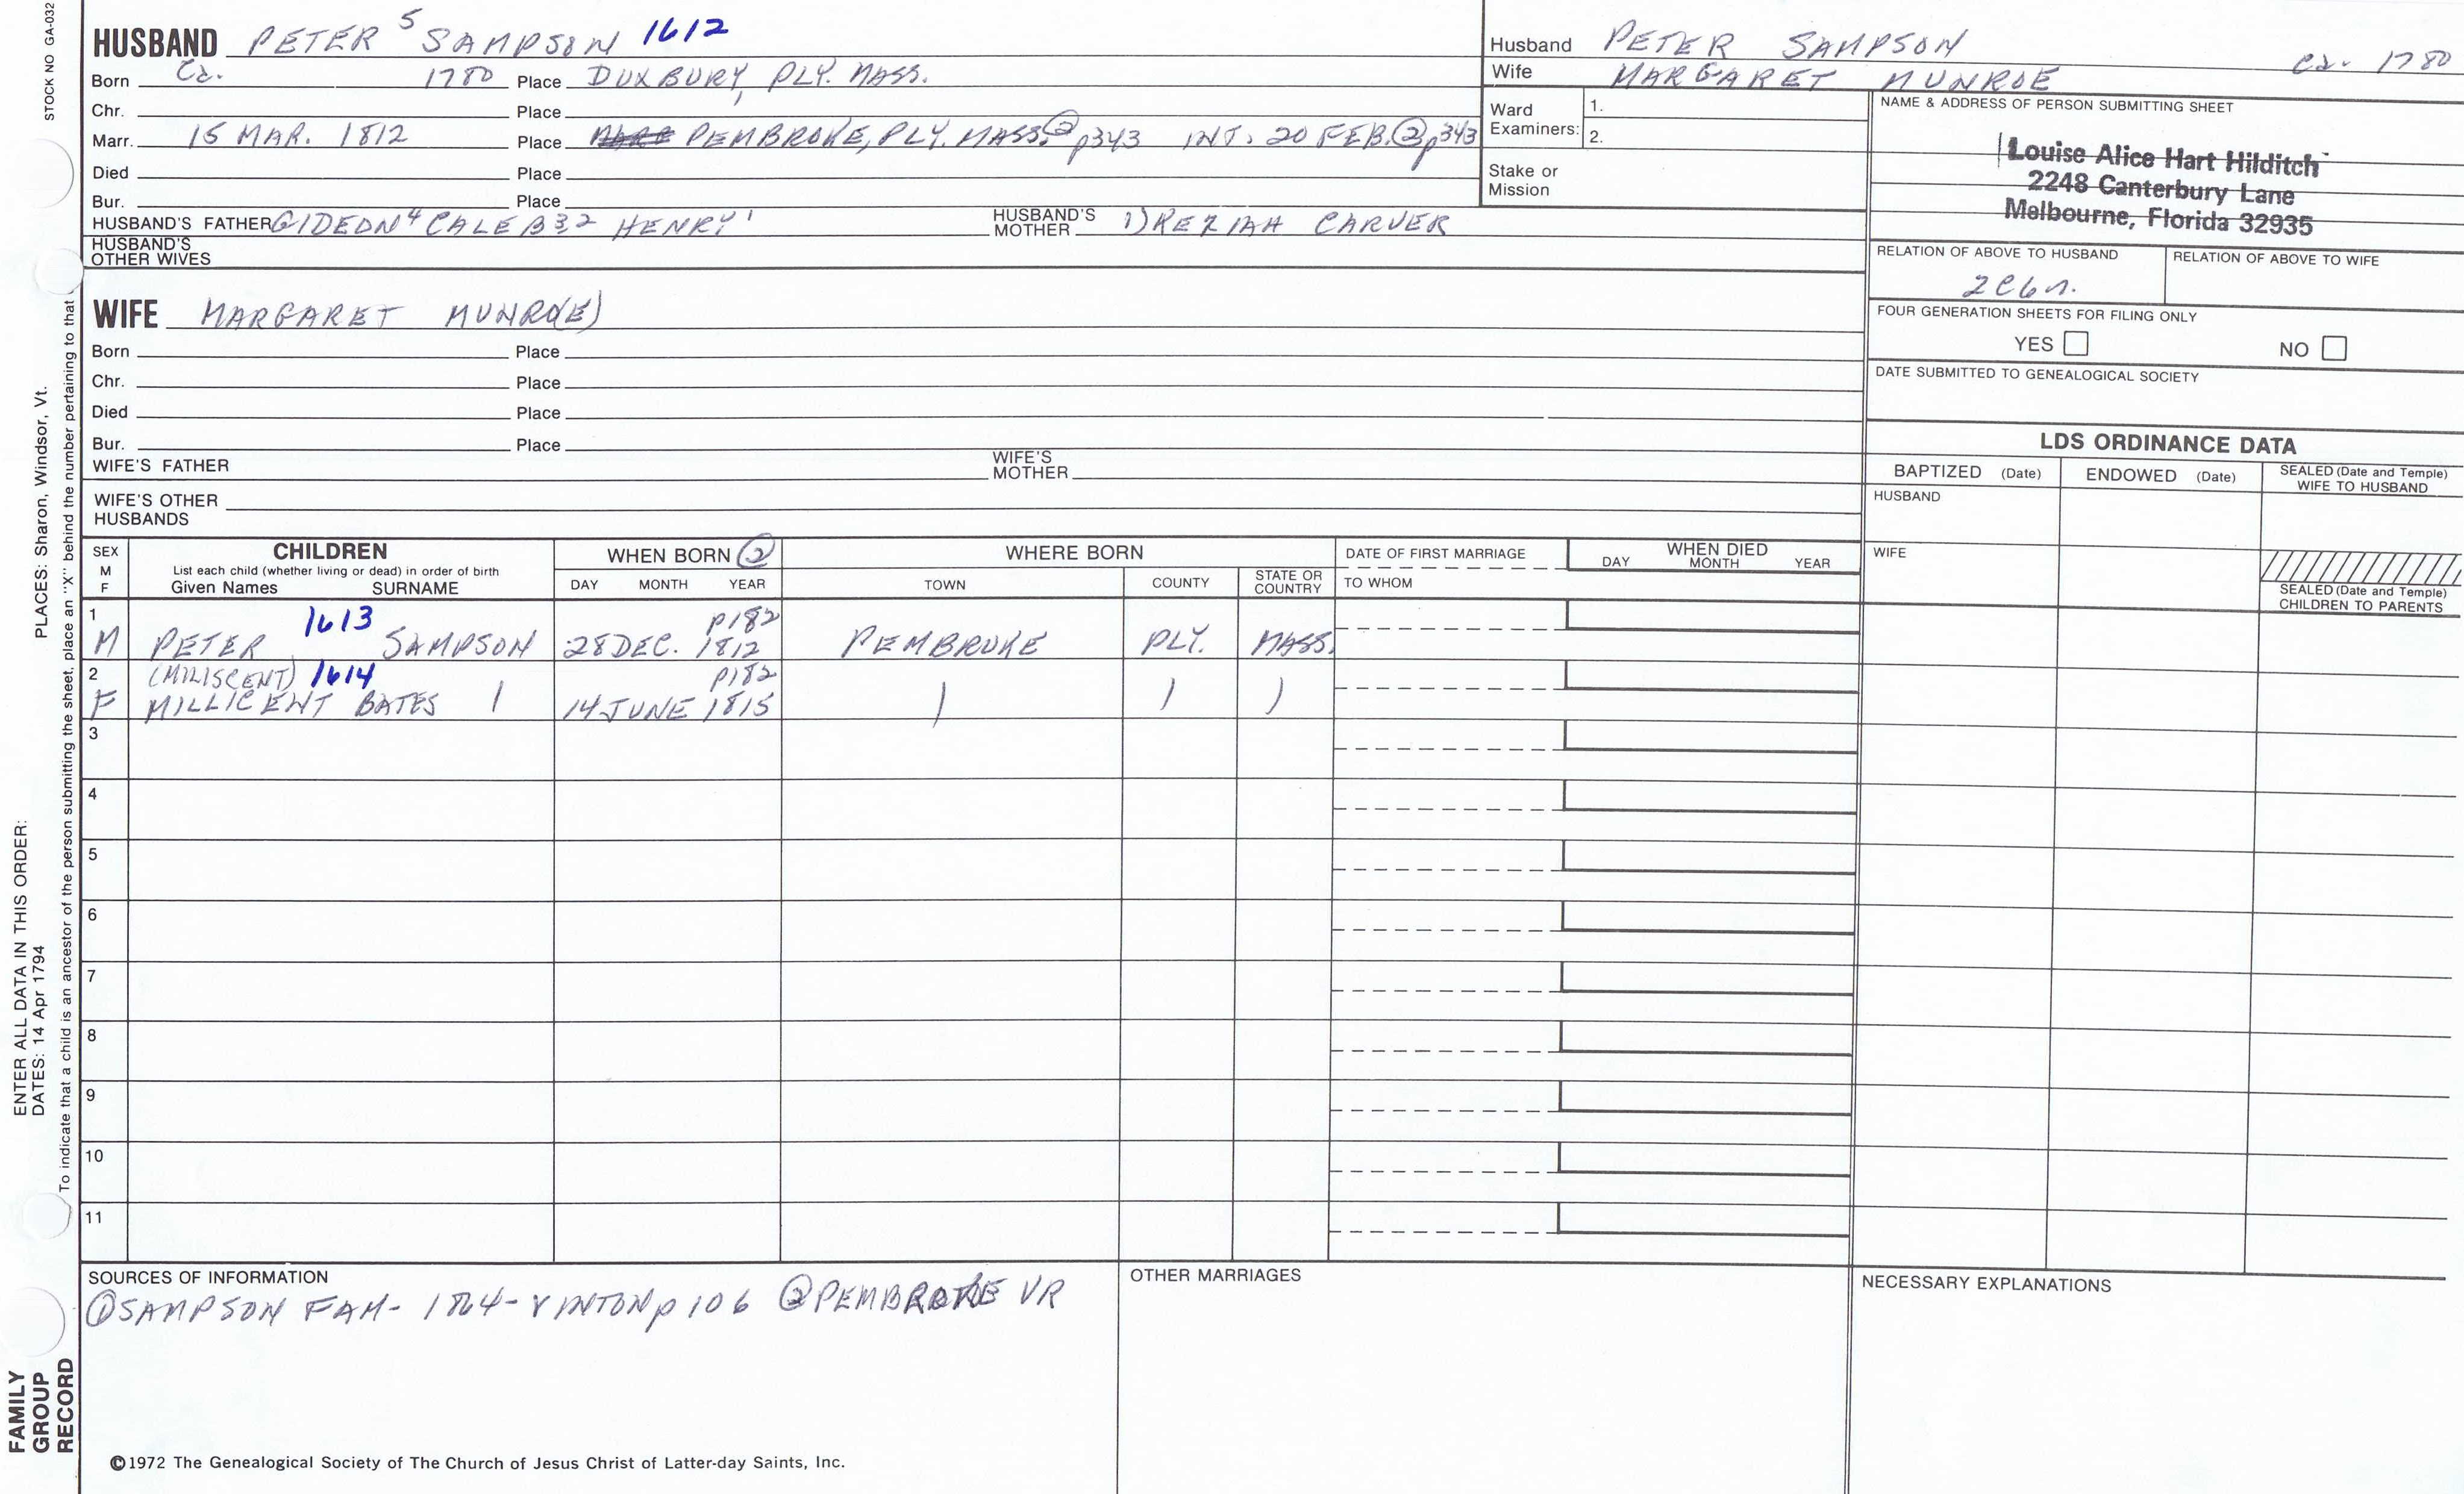 STOCK NO GA-032
HUSBAND PETER 5 SAMPSON 1612
Born Ca. 1780 Place DUXBURY, PLY. MASS.
Chr. Place
Marr. 15 MAR. 1812 Place PEMBROKE, PLY. MASS. ② p343 INT. 20 FEB. ② p343
Died Place
Bur. Place
HUSBAND'S FATHER GIDEON 4 CALEB 3 2 HENRY 1 HUSBAND'S MOTHER 1) KEZIAH CARVER
HUSBAND'S OTHER WIVES
Husband PETER SAMPSON ca. 1780
Wife MARGARET MUNROE
Ward Examiners: 1.
2.
Stake or Mission
NAME & ADDRESS OF PERSON SUBMITTING SHEET
Louise Alice Hart Hilditch
2248 Canterbury Lane
Melbourne, Florida 32935
RELATION OF ABOVE TO HUSBAND RELATION OF ABOVE TO WIFE
FOUR GENERATION SHEETS FOR FILING ONLY
YES NO
DATE SUBMITTED TO GENEALOGICAL SOCIETY
WIFE MARGARET MUNRO(E)
Born Place
Chr. Place
Died Place
Bur. Place
WIFE'S FATHER WIFE'S MOTHER
WIFE'S OTHER HUSBANDS
LDS ORDINANCE DATA
BAPTIZED (Date) ENDOWED (Date) SEALED (Date and Temple) WIFE TO HUSBAND
HUSBAND
WIFE
SEALED (Date and Temple) CHILDREN TO PARENTS
SEX M F CHILDREN WHEN BORN ② WHERE BORN DATE OF FIRST MARRIAGE WHEN DIED
List each child (whether living or dead) in order of birth
Given Names SURNAME DAY MONTH YEAR TOWN COUNTY STATE OR COUNTRY TO WHOM DAY MONTH YEAR
1 1613 p182
M PETER SAMPSON 28 DEC. 1812 PEMBROKE PLY. MASS.
2 (MILISCENT) 1614 p182
F MILLICENT BATES 14 JUNE 1815
3
4
5
6
7
8
9
10
11
SOURCES OF INFORMATION
① SAMPSON FAM- 1864- VINTON p 106 ② PEMBROKE VR
OTHER MARRIAGES
NECESSARY EXPLANATIONS
©1972 The Genealogical Society of The Church of Jesus Christ of Latter-day Saints, Inc.
FAMILY
GROUP
RECORD
ENTER ALL DATA IN THIS ORDER:
DATES: 14 Apr 1794 PLACES: Sharon, Windsor, Vt.
To indicate that a child is an ancestor of the person submitting the sheet, place an "X" behind the number pertaining to that